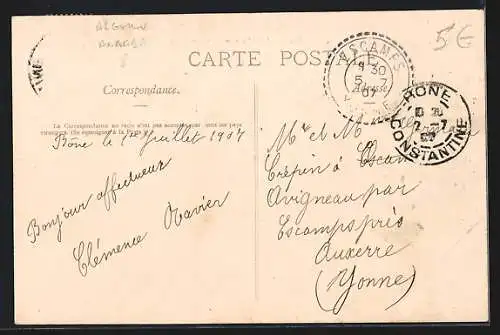 ALGERIE
ARABE
5€
CARTE POSTALE
ESCAMPS
9 30
5 - 7
07
YONNE
BONE
2 - 7
07
CONSTANTINE
Correspondance.
Adresse
La Correspondance au recto n'est pas acceptée par tous les pays
étrangers. (Se renseigner à la Poste)
Bône le 1er Juillet 1907
Bonjour affectueux
Clémence Xavier
Mr et Mme
Crépin à Escamps
Avigneau par
Escamps près
Auxerre
(Yonne)